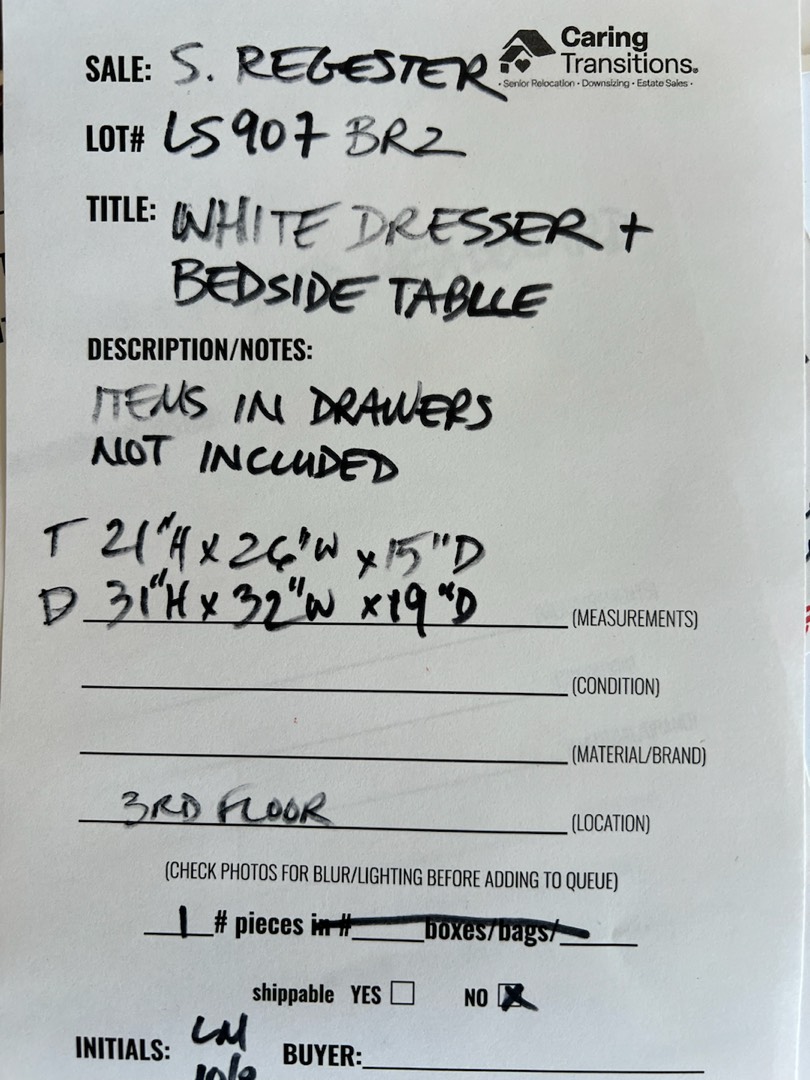 Caring
SALE: S. REGESTER Transitions®
· Senior Relocation · Downsizing · Estate Sales ·
LOT# LS907 BR2
TITLE: WHITE DRESSER +
BEDSIDE TABLLE
DESCRIPTION/NOTES:
ITEMS IN DRAWERS
NOT INCLUDED
T 21"H x 26"W x 15"D
D 31"H x 32"W x 19"D (MEASUREMENTS)
(CONDITION)
(MATERIAL/BRAND)
3RD FLOOR (LOCATION)
(CHECK PHOTOS FOR BLUR/LIGHTING BEFORE ADDING TO QUEUE)
1 # pieces in # boxes/bags/
shippable YES ☐ NO ☒
INITIALS: LM BUYER: